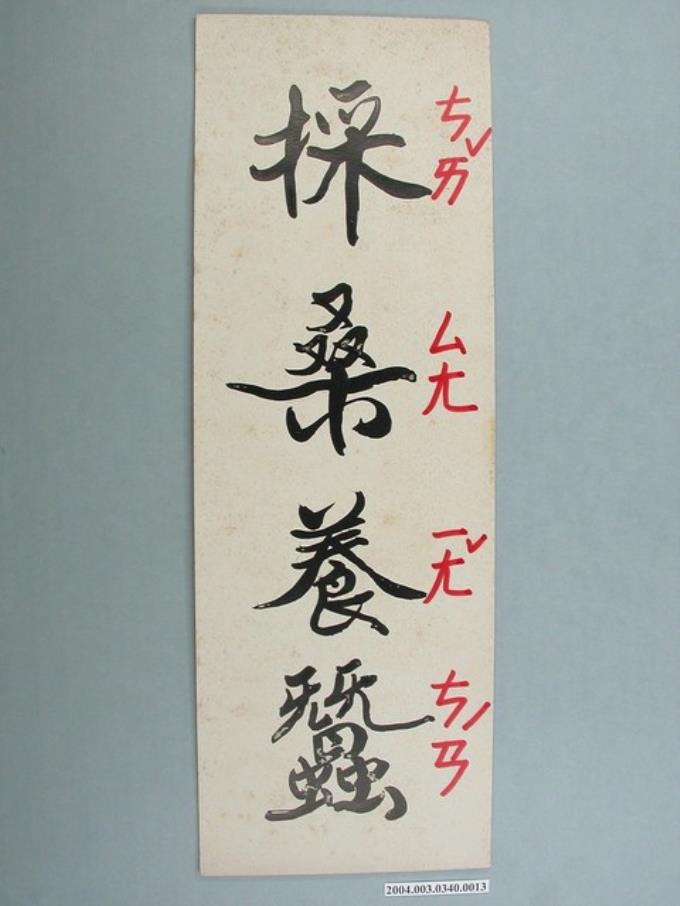 採桑養蠶
ㄘㄞˇ
ㄙㄤ
ㄧㄤˇ
ㄘㄢˊ
2004.003.0340.0013